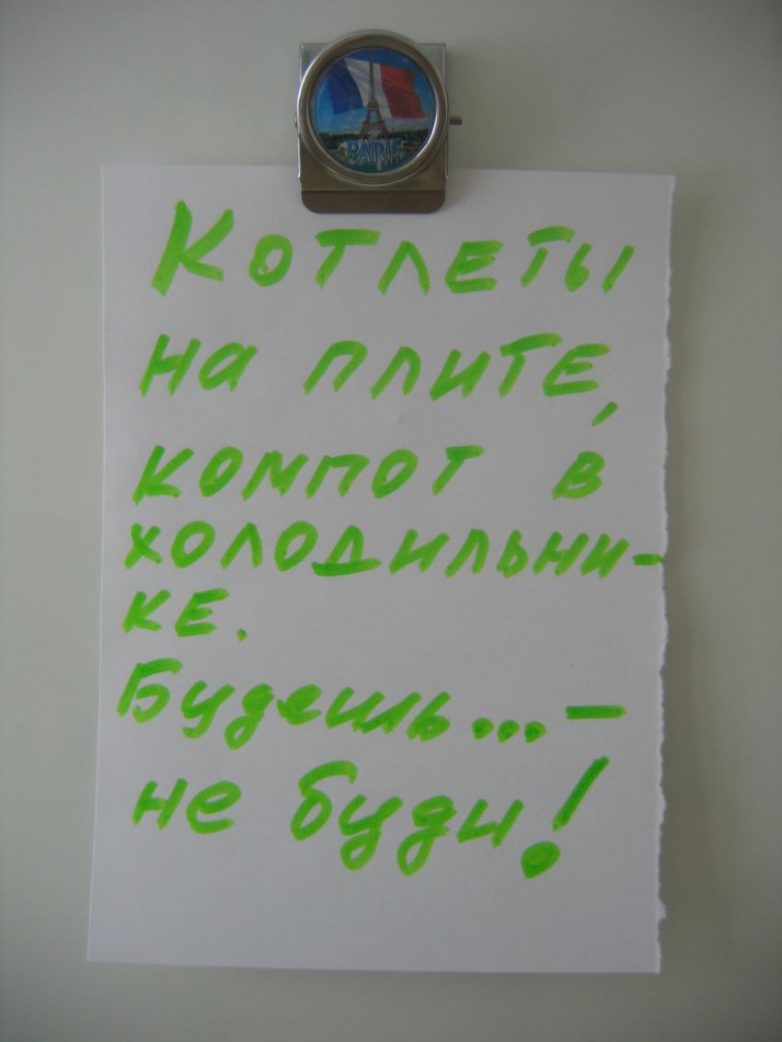 PARIS
Котлеты
на плите,
компот в
холодильни-
ке.
Будешь...-
не буди!